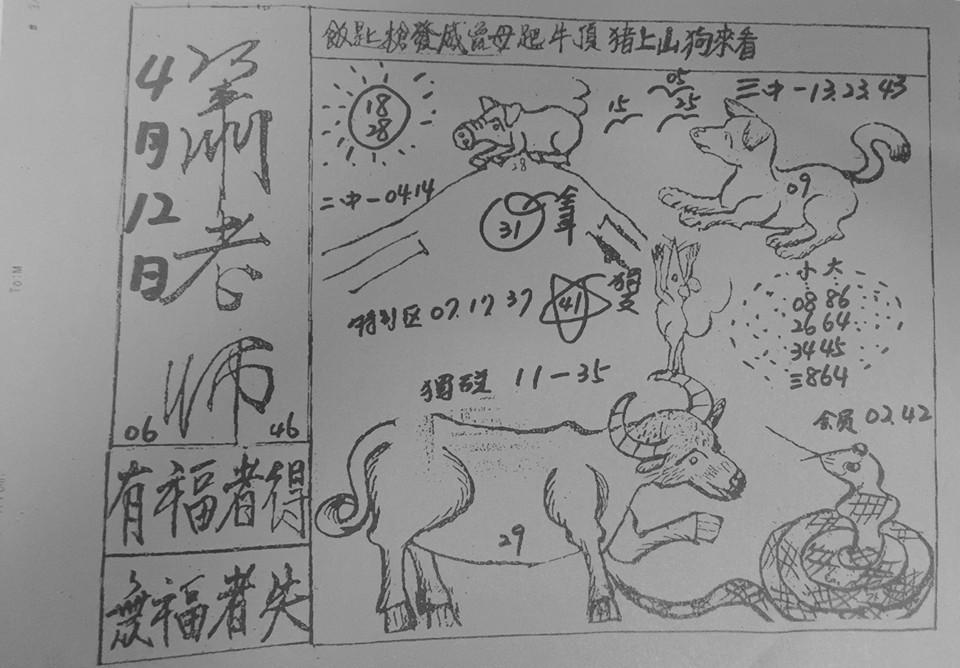 飯匙槍發威當母起牛頂 猪上山狗來看
4月12日
蕭老師
06 46
有福者得
無福者失
18
28
15
05
25
三中一13.23.43
28
09
二中一04.14
31
特别区 07.17.37
41
小大
08 86
26 64
34 45
三864
11-35
会员 02.42
29
To:M